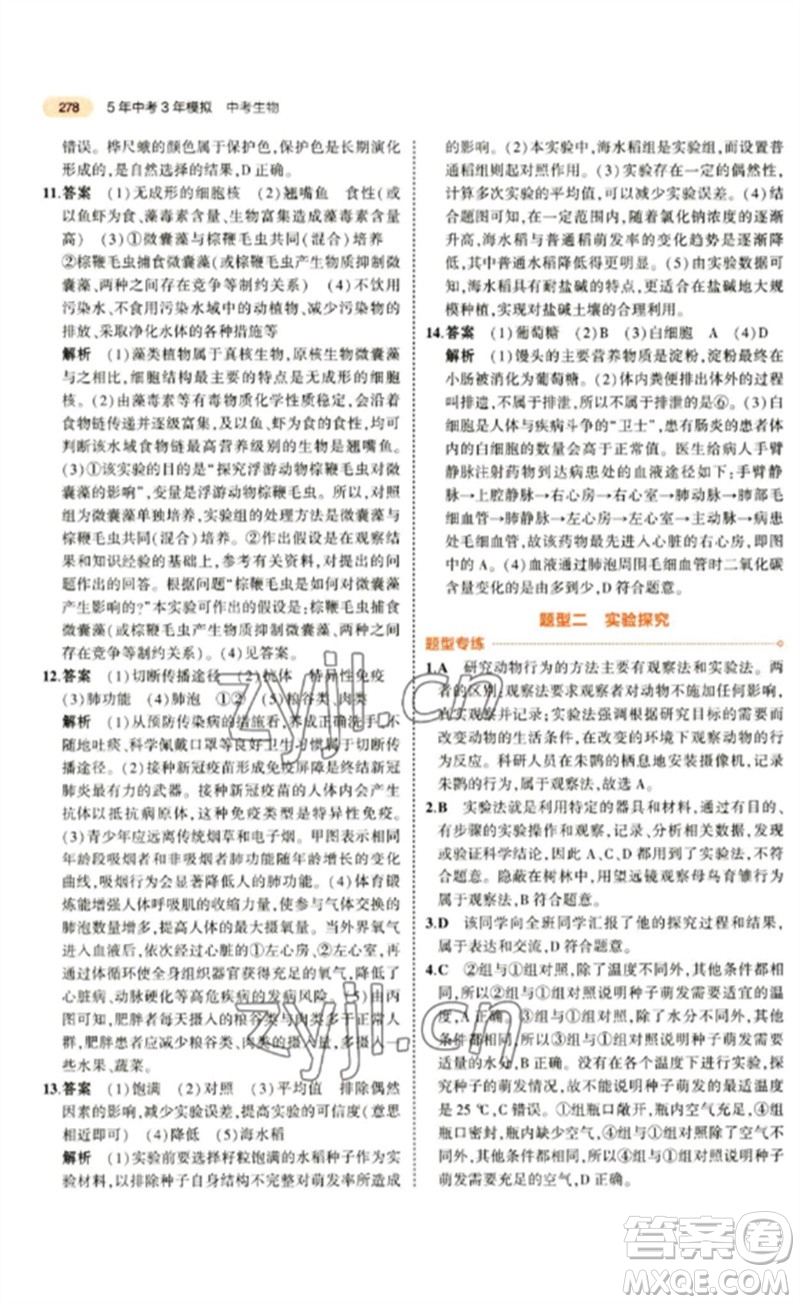 278 5年中考3年模拟 中考生物
错误。桦尺蛾的颜色属于保护色,保护色是长期演化
形成的,是自然选择的结果,D正确。
11.答案 (1)无成形的细胞核 (2)翘嘴鱼 食性(或
以鱼虾为食、藻毒素含量、生物富集造成藻毒素含量
高) (3)①微囊藻与棕鞭毛虫共同(混合)培养
②棕鞭毛虫捕食微囊藻(或:棕鞭毛虫抑制微囊藻,
两种之间存在竞争等生物种间关系) (4)不饮用
污染水、不食用污染水域中的动植物、减少污染物的
排放、采取净化水体的各种措施等
解析 (1)藻类植物属于真核生物,原核生物微囊藻
与其相比,细胞结构最主要的特点是无成形的细胞
核。(2)由藻毒素等有毒物质化学性质稳定,会沿着
食物链传递并逐级富集,以及鱼、虾为食的食性,均可
判断该水域食物链最高营养级别的生物是翘嘴鱼。
(3)①该实验的目的是“探究浮游动物棕鞭毛虫对微
囊藻的影响”,变量是浮游动物棕鞭毛虫。所以,对照
组为微囊藻单独培养,实验组的处理方法是微囊藻与
棕鞭毛虫共同(混合)培养。②作出假设是在观察结
果和知识经验的基础上,参考有关资料,对问题作出
的回答。根据问题:棕鞭毛虫是如何对微囊藻
产生影响的?本实验可作出的假设是:棕鞭毛虫捕食
微囊藻(或:棕鞭毛虫抑制微囊藻,两种之间存在竞争
等生物种间关系)。(4)见答案。
12.答案 (1)切断传播途径 (2)抗体 特异性免疫
(3)肺功能 (4)肺泡 ①② (5)粮谷类、肉类
解析 (1)从预防传染病的措施看,养成正确洗手、不
随地吐痰、科学佩戴口罩等良好卫生习惯属于切断传
播途径。(2)接种新冠疫苗形成免疫屏障是终结新冠
肺炎最有力的武器。接种新冠疫苗的人体内会产生
抗体以抵抗病毒,这种免疫类型是特异性免疫。
(3)青少年应远离传统烟草和电子烟。甲图表示相同
年龄段吸烟者和非吸烟者肺功能随年龄的变化
曲线,吸烟会显著降低人的肺功能。(4)体育锻
炼能增强人体呼吸功能,使参与气体交换的
肺泡数量增多,提高人体的最大摄氧量。当外界氧气
进入血液后,经过心脏的①左心房、②左心室,通过
体循环使全身组织器官获得充足的氧气,降低患冠心
病、动脉硬化等高危疾病的发病风险。(5)由丙
图可知,肥胖者每天摄入的粮谷类和肉类多于正常
人群,肥胖患者应少摄入一些粮谷类和肉类,多摄入一
些水果、蔬菜。
13.答案 (1)饱满 (2)对照 (3)平均值 排除偶然
因素的影响,减少实验误差,提高实验的可信度(意思
相近即可) (4)降低 (5)海水稻
解析 (1)实验前要选择籽粒饱满的水稻种子作为实
验材料,以排除种子自身结构不完整对萌发率所造成
的影响。(2)本实验中,海水稻组是实验组,设置普
通稻组则起对照作用。(3)实验存在一定的偶然性,
计算多次实验的平均值,可以减少实验误差。(4)
结合题图可知,在一定范围内,随着氯化钠浓度的逐渐
升高,海水稻与普通稻萌发率的变化趋势是逐渐降
低,其中普通水稻的萌发率降低得更快。(5)根据实
验结果,海水稻具有耐盐碱的特点,可在盐碱地大规
模种植,实现对盐碱土壤的合理利用。
14.答案 (1)葡萄糖 (2)B (3)白细胞 A (4)D
解析 (1)馒头的主要营养物质是淀粉,淀粉最终在
小肠被消化为葡萄糖。(2)体内粪便排出体外的过程
叫排遗,不属于排泄,所以不属于排泄的是⑥。(3)
白细胞是人体与疾病斗争的“卫士”,患有肠炎的患者体
内的白细胞的数量会高于正常值。医生给病人手臂
静脉注射药物到达病患处的血液途径如下:手臂静
脉→上腔静脉→右心房→右心室→肺动脉→肺部毛
细血管→肺静脉→左心房→左心室→主动脉→病患
处,故该药物最先进入心脏的右心房,对应图
中的A。(4)血液通过肺泡周围毛细血管时二氧化碳
含量变化的是由多到少,D符合题意。
题型二 实验探究
题型专练
1.A 研究动物行为的方法主要有观察法和实验法。两
者的区别:观察法要求观察者对动物不施加任何影响,
真实观察并记录;实验法强调根据研究目标的需要而
改变动物的生活条件,在改变的环境下观察动物的行
为反应。科研人员在朱鹮的栖息地安装摄像机,观察朱
鹮的行为,属于观察法,故选A。
2.B 实验法就是利用特定的器具和材料,通过有目的、
有步骤的实验操作和观察、记录、分析相关数据,发现
或验证科学结论,因此A、C、D都属于实验法,不
符合题意。隐蔽在树林中,用望远镜观察母鸟育雏行为
属于观察法,B符合题意。
3.D 该同学向全班同学汇报了他的探究过程和结果,
属于表达和交流,D符合题意。
4.C ②组与①组对照,除了温度不同外,其他条件都相
同,所以②组与①组对照说明种子萌发需要适宜的温
度,A正确。③组与①组对照,除了水分不同外,其他
条件都相同,所以③组与①组对照说明种子萌发需要
适量的水分,B正确。本实验没有设置高温组,探
究种子的萌发情况,故不能说明种子萌发的最适温度
是25℃,C错误。①组瓶口敞开,瓶内有空气,④组
瓶口密封,瓶内缺少空气,④组与①组对照,除了空气
不同外,其他条件都相同,④组与①组对照说明种子
萌发需要充足的空气,D正确。
zyjl.cn
zyjl.cn
答案圈
MXQE.COM